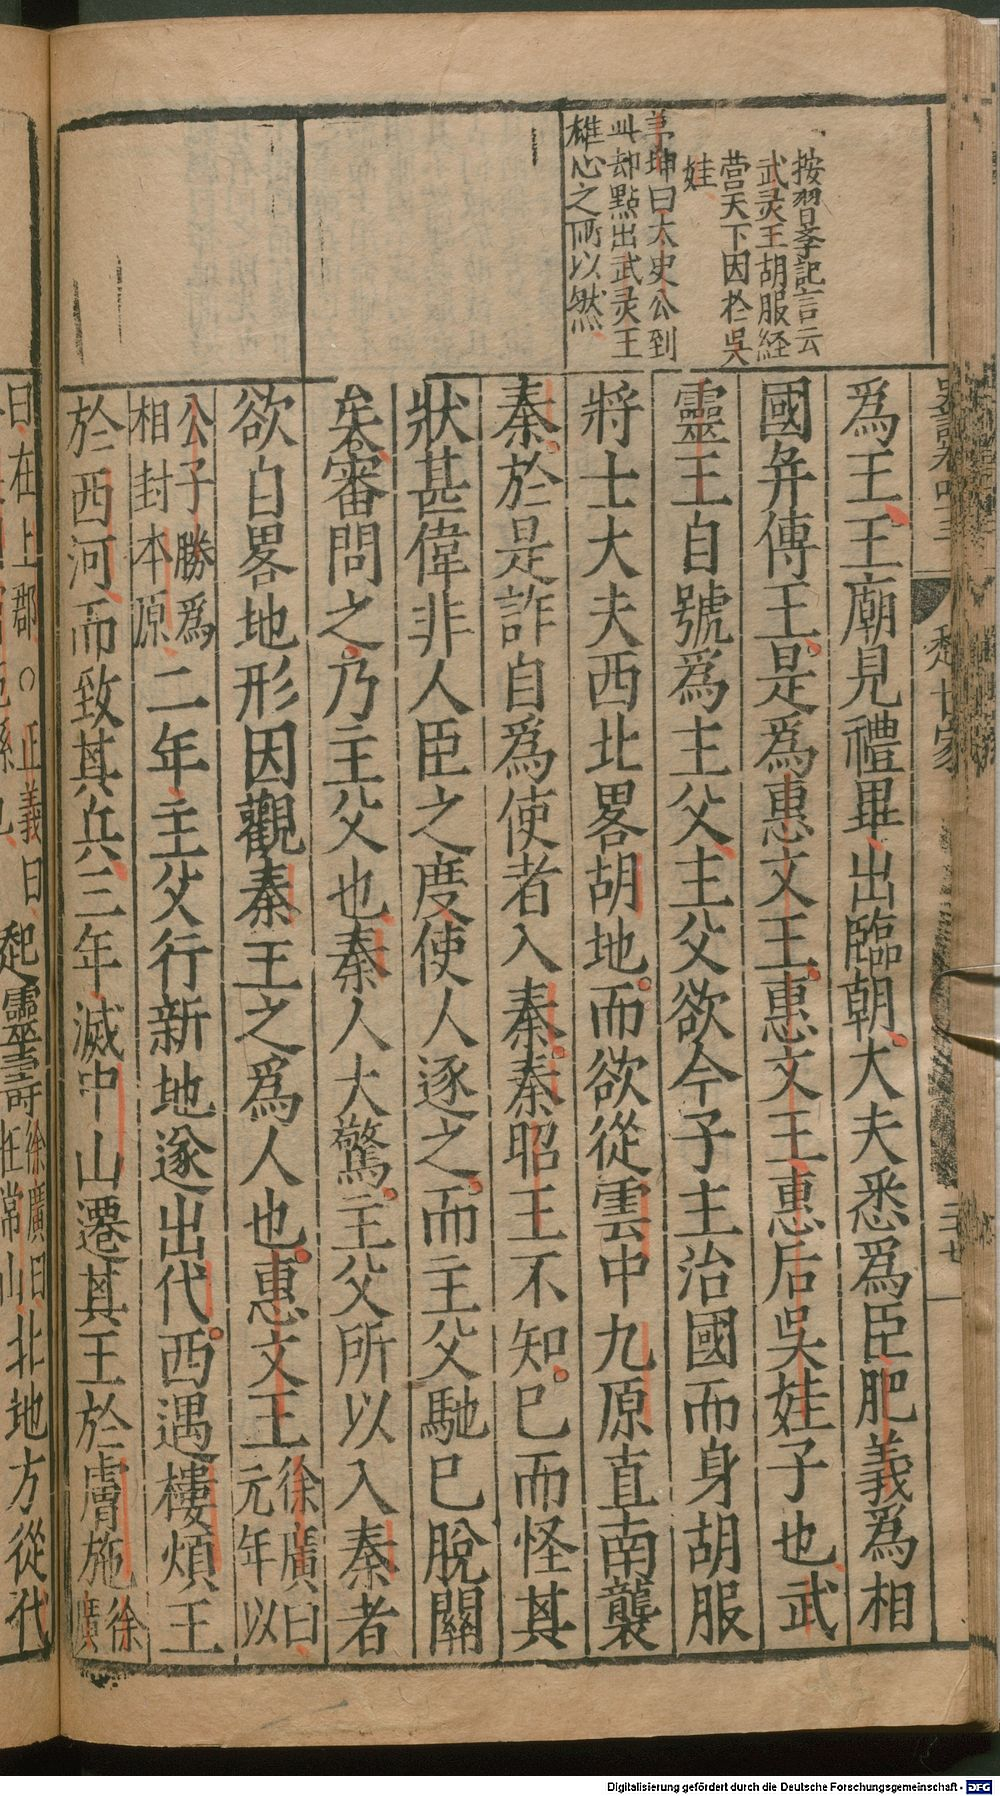 按習孝記言云
武灵王胡服経
营天下因於吳
娃
茅坤曰太史公到
此却點出武灵王
雄心之所以然
趙世家
為王王廟見禮畢出臨朝大夫悉為臣肥義為相
國弁傅王是為惠文王惠文王惠后吳娃子也武
靈王自號為主父主父欲令子主治國而身胡服
將士大夫西北畧胡地而欲從雲中九原直南襲
秦於是詐自為使者入秦秦昭王不知已而怪其
狀甚偉非人臣之度使人逐之而主父馳已脫關
矣審問之乃主父也秦人大驚主父所以入秦者
欲自畧地形因觀秦王之為人也惠文王徐廣曰元年以
公子勝為相封本原二年主父行新地遂出代西遇樓煩王
於西河而致其兵三年滅中山遷其王於膚施徐廣
曰在上郡○正義曰起靈壽徐廣曰在常山北地方從代
Digitalisierung gefördert durch die Deutsche Forschungsgemeinschaft - DFG